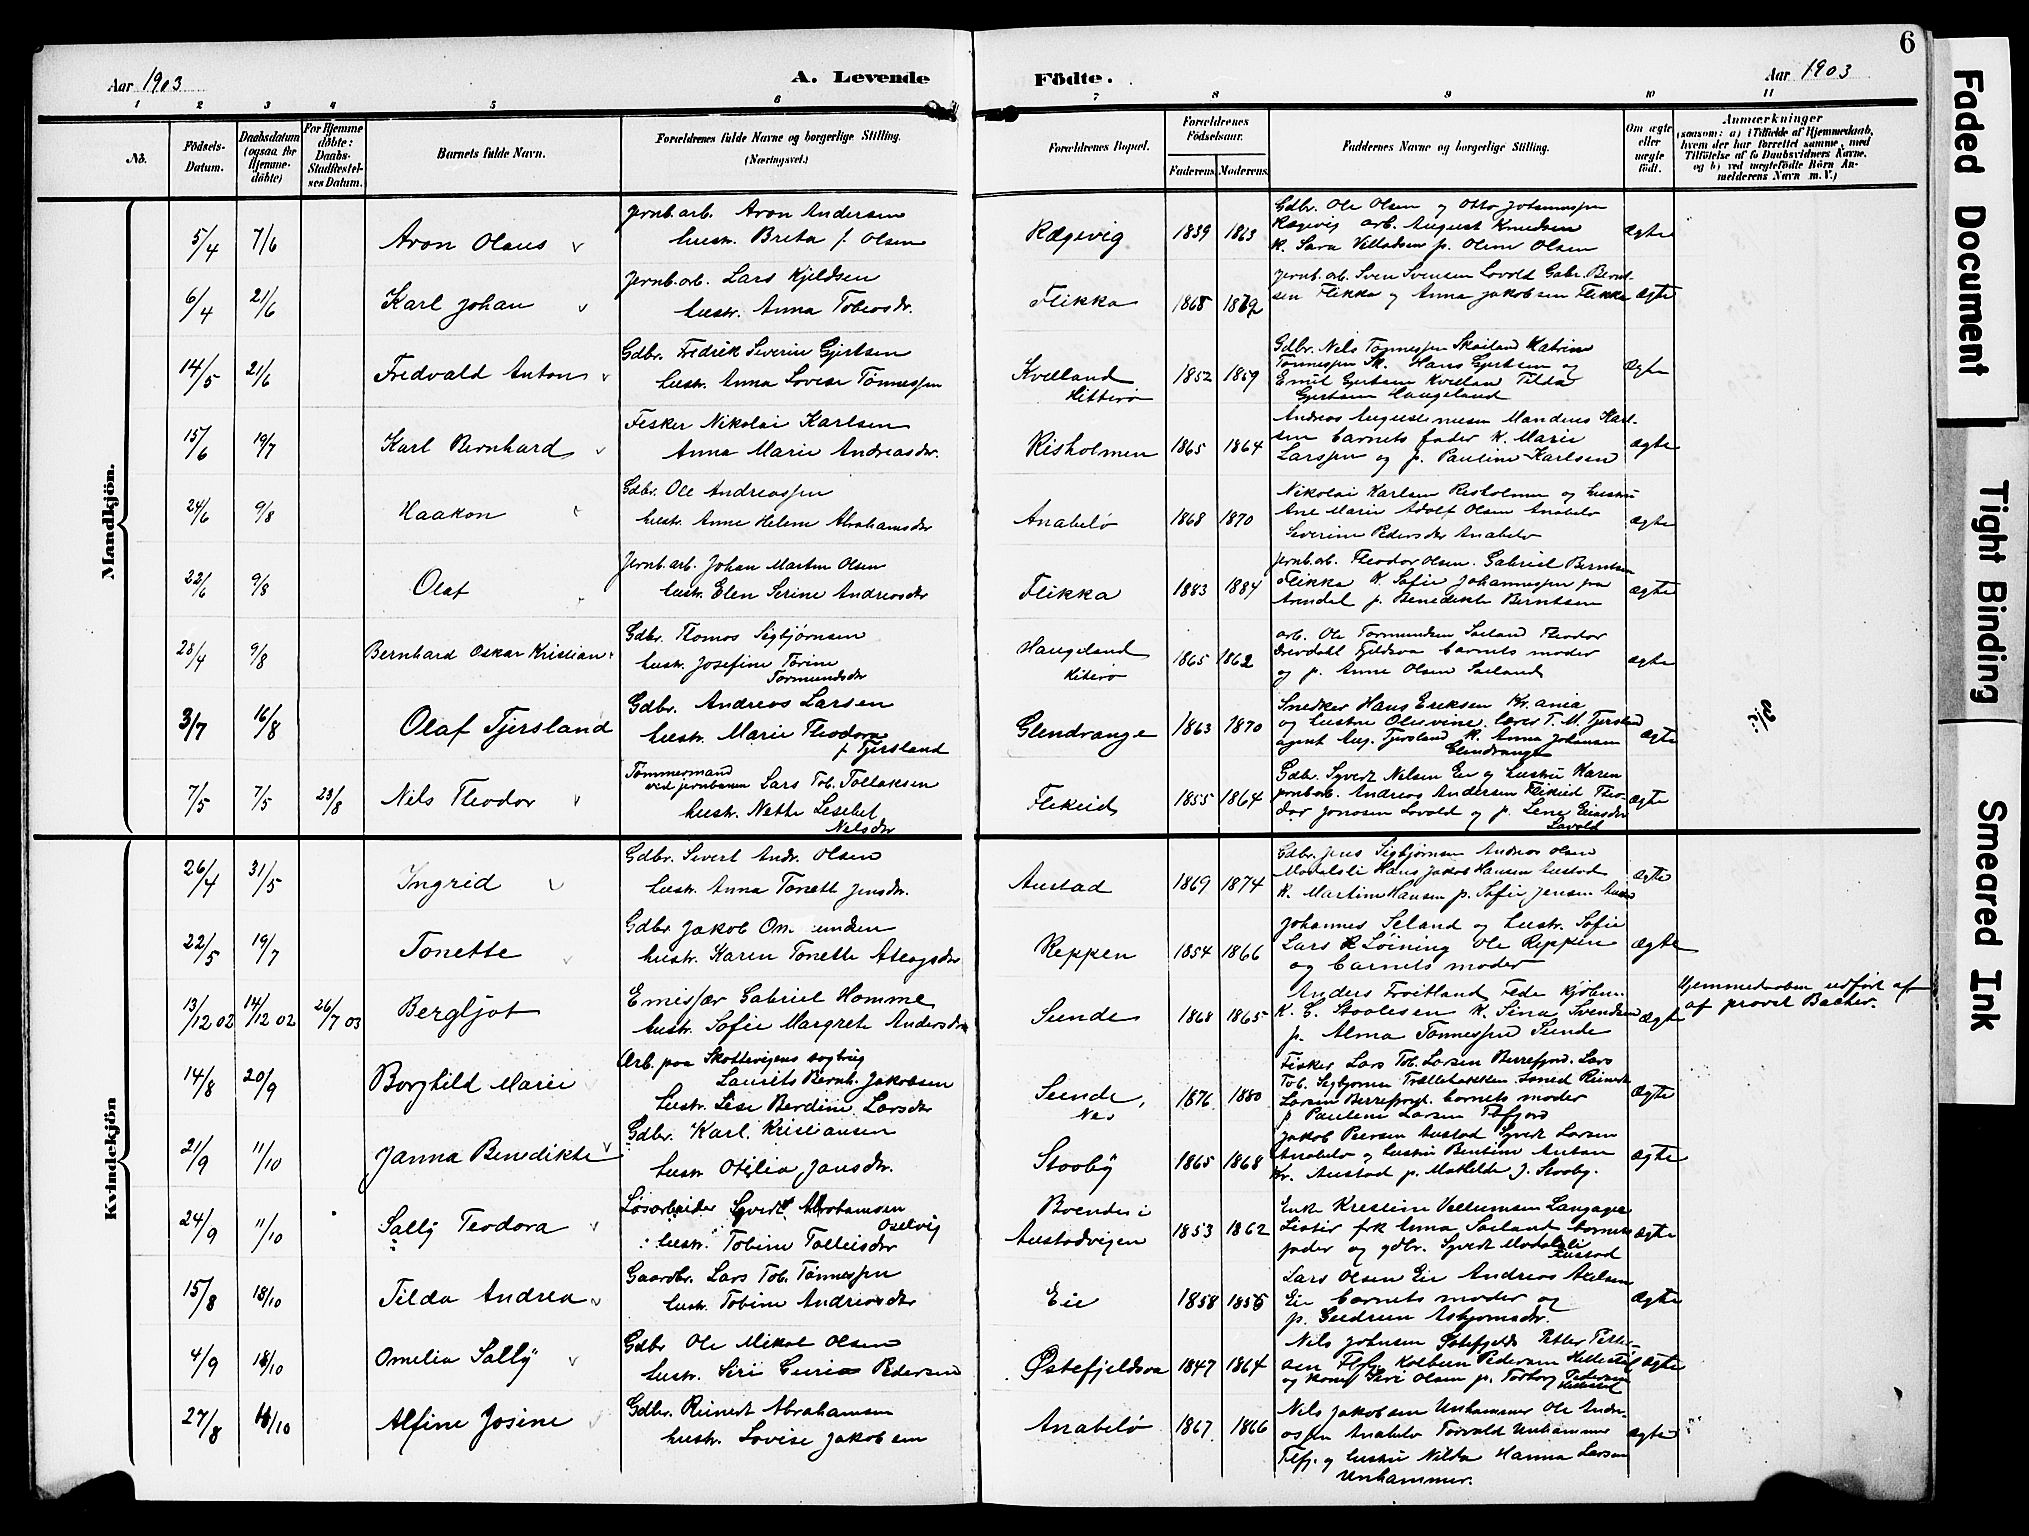 6
Aar 1903
A. Levende Födte.
Aar 1903
1 2 3 4 5 6 7 8 9 10 11
No.
Födsels-Datum.
Daabsdatum (ogsaa for Hjemme-döbte)
For Hjemme döbte: Daabs-Stadfæstel-ses Datum.
Barnets fulde Navn.
Forældrenes fulde Navne og borgerlige Stilling. (Næringsvei.)
Forældrenes Bopæl.
Forældrenes Födselsaar.
Faderens. Moderens.
Faddernes Navne og borgerlige Stilling.
Om ægte eller uægte födt.
Anmærkninger
(saasom: a) i Tilfælde af Hjemmedaab,
hvem der har forrettet samme, med
Tilföielse af to Daabsvidners Navne,
og b) ved uægtefödte Börn An-
melderens Navn m. V.)
Mandkjön.
5/4 7/6 Aron Olaus
Jernb.arb. Aron Andersen
hustr. Breta f. Olsen
Rægevig 1839 1863
Gdbr. Ole Olsen og Otto Johannessen
Rægevig arb. August Knudsen
K. Sara Villadsen p. Oline Olsen
ægte
6/4 21/6 Karl Johan
Jernb.arb. Lars Kjeldsen
hustr. Anna Tobiasdr.
Flikka 1868 1872
Jernb.arb. Sven Svensen Lovold Gabr. Bernt-
sen Flikka og Anna Jakobsen Flikka
ægte
14/5 21/6 Fredvald Anton
Gdbr. Fedrik Severin Gjertsen
hustr. Anna Lovise Tönnessen
Kvelland
Hitterø
1852 1859
Gdbr. Nils Tønnessen Skailand Katrine
Tønnessen Sk. Hans Gjertsen og
Emil Gjertsen Kvelland Tilda
Gjertsen Haugeland
ægte
15/6 19/7 Karl Bernhard
Fisker Nikolai Karlsen
Anna Marie Andreasdr.
Risholmen 1865 1864
Andreas Augustinusen Mandius Karl-
sen barnets fader K. Marie
Larssen og p. Pauline Karlsen
ægte
24/6 9/8 Haakon
Gdbr. Ole Andreassen
hustr. Anne Helene Abrahamsdr
Anabelø 1868 1870
Nikolai Karlsen Risholmen og hustru
Ane Marie Adolf Olsen Anabelø
Severine Pedersdr Anabelø
ægte
22/6 9/8 Olaf
Jernb.arb. Johan Martin Olsen
hustr. Elen Serine Andreasdr
Flikka 1883 1884
Jernb.arb. Theodor Olsen. Gabriel Berntsen
Flikka K. Sofie Johannessen fra
Arendal p. Benedikte Berntsen
ægte
28/4 9/8 Bernhard Oskar Kristian
Gdbr. Thomas Sigbjørnsen
hustr. Josefine Torine
Tormundsdr
Haugeland
Hiterø
1865 1862
arb. Ole Tormundsen Saeland Theodor
barnets moder
og p. Anne Olsen Saeland
ægte
3/7 16/8 Olaf Tjersland
Gdbr. Andreas Larsen
hustr. Marie Theodora
f. Tjersland
Glendrange 1863 1870
Snedker Hans Eriksen Kr.ania
og hustru Olevine. lærer T. M. Tjersland
agent Aug. Tjersland K. Anna Johansen
Glendrange
ægte
7/5 7/5 23/8 Nils Theodor
Tømmermand
ved jernbanen Lars Tob. Tollaksen
hustr. Nette Lisebet
Nelsdr
Flekeid 1855 1864
Gdbr. Syvert Nelsen Eie og hustru Karen
jernb.arb. Andreas Andersen Flikeid Theo-
dor Jonasen Lovold og p. Lene Eiasdr
Lovold
ægte
Kvindekjön
26/4 31/5 Ingrid
Gdbr. Sivert Andr. Olsen
hustr. Anna Tonette Jensdr.
Austad 1869 1874
Gdbr. Jens Sigbjørnsen Andreas Olsen
Modalsli Hans Jakob Hansen Austad
K. Martine Hansen p. Sofie Jensen
ægte
22/5 19/7 Tonette
Gdbr Jakob Om unden
hustr. Karen Tonette Atlagsdr
Reppen 1854 1866
Johannes Seland og hustr. Sofie
Lars R Löining Ole Reppen
og barnets moder
ægte
13/12 02 14/12 02 26/7 03 Bergljot
Emissær Gabriel Homme
hustr. Sofie Margrete Andersdr
Sunde 1868 1865
Anders Froitland Feda Kjöbm.
K. G. Staalesen K. Sina Svendsen
p. Alma Tønnessen Sunde
ægte
Hjemmedaaben udført af
af provst Bacher.
14/8 20/9 Borghild Marie
Arb. paa Skottevigens sagbrug
Laurits Bernh. Jakobsen
hustr. Lise Berdine Larsdr
Sunde,
Nes
1876 1880
Fisker Lars Tob. Larsen Berrefjord. Lars
Tob. Sigbjørnsen Trællebakken
Larsen Berrefjord. barnets moder
p. Pauline Larsen
ægte
21/9 11/10 Janna Benedikte
Gdbr. Karl. Kristiansen
hustr. Otilia Jansdr.
Stooby 1865 1868
Jakob Peersen Austad Syvert Larsen
Anabelø og hustru Bentine Anton
Kr. Austad p. Mathilde J. Stooby.
ægte
24/9 11/10 Sally Teodora
Løsarbeider Syvert Abrahamsen
Oselvig
hustr. Tobine Tolleisdr
Boende i
Austadvigen
1853 1862
Enke Kristine Villumsen Langager
Lister frk Anna Saeland barnets
fader og gdbr. Syvert Modalsli
Austad
ægte
15/8 18/10 Tilda Andrea
Gaardbr. Lars Tob. Tønnessen
hustr. Tobine Andreasdr
Eie 1858 1856
Lars Olsen Eie Andreas Axelsen
Eie barnets moder og
p. Gudrun Asbjørnsdr.
ægte
4/9 18/10 Omelia Sally
Gdbr Ole Mikal Olsen
hustr. Siri Guria Pedersen
Østefjeldsaa 1847 1864
Nils Johnsen Østefjelds Petter Terki-
sen Flfj. Kolbein Pedersen
og kone Siri Olsen p. Torborg Pedersen
ægte
27/8 18/10 Alfine Josine
Gdbr. Reinert Abrahamsen
hustr. Lovise Jakobsen
Anabelø 1867 1866
Nils Jakobsen Unhammer Ole Andre-
assen Anabelø Torvald Unhammer
Flfj. og hustru Nilda Hanna Larsen
Unhammer.
ægte
Faded Document
Tight Binding
Smeared Ink